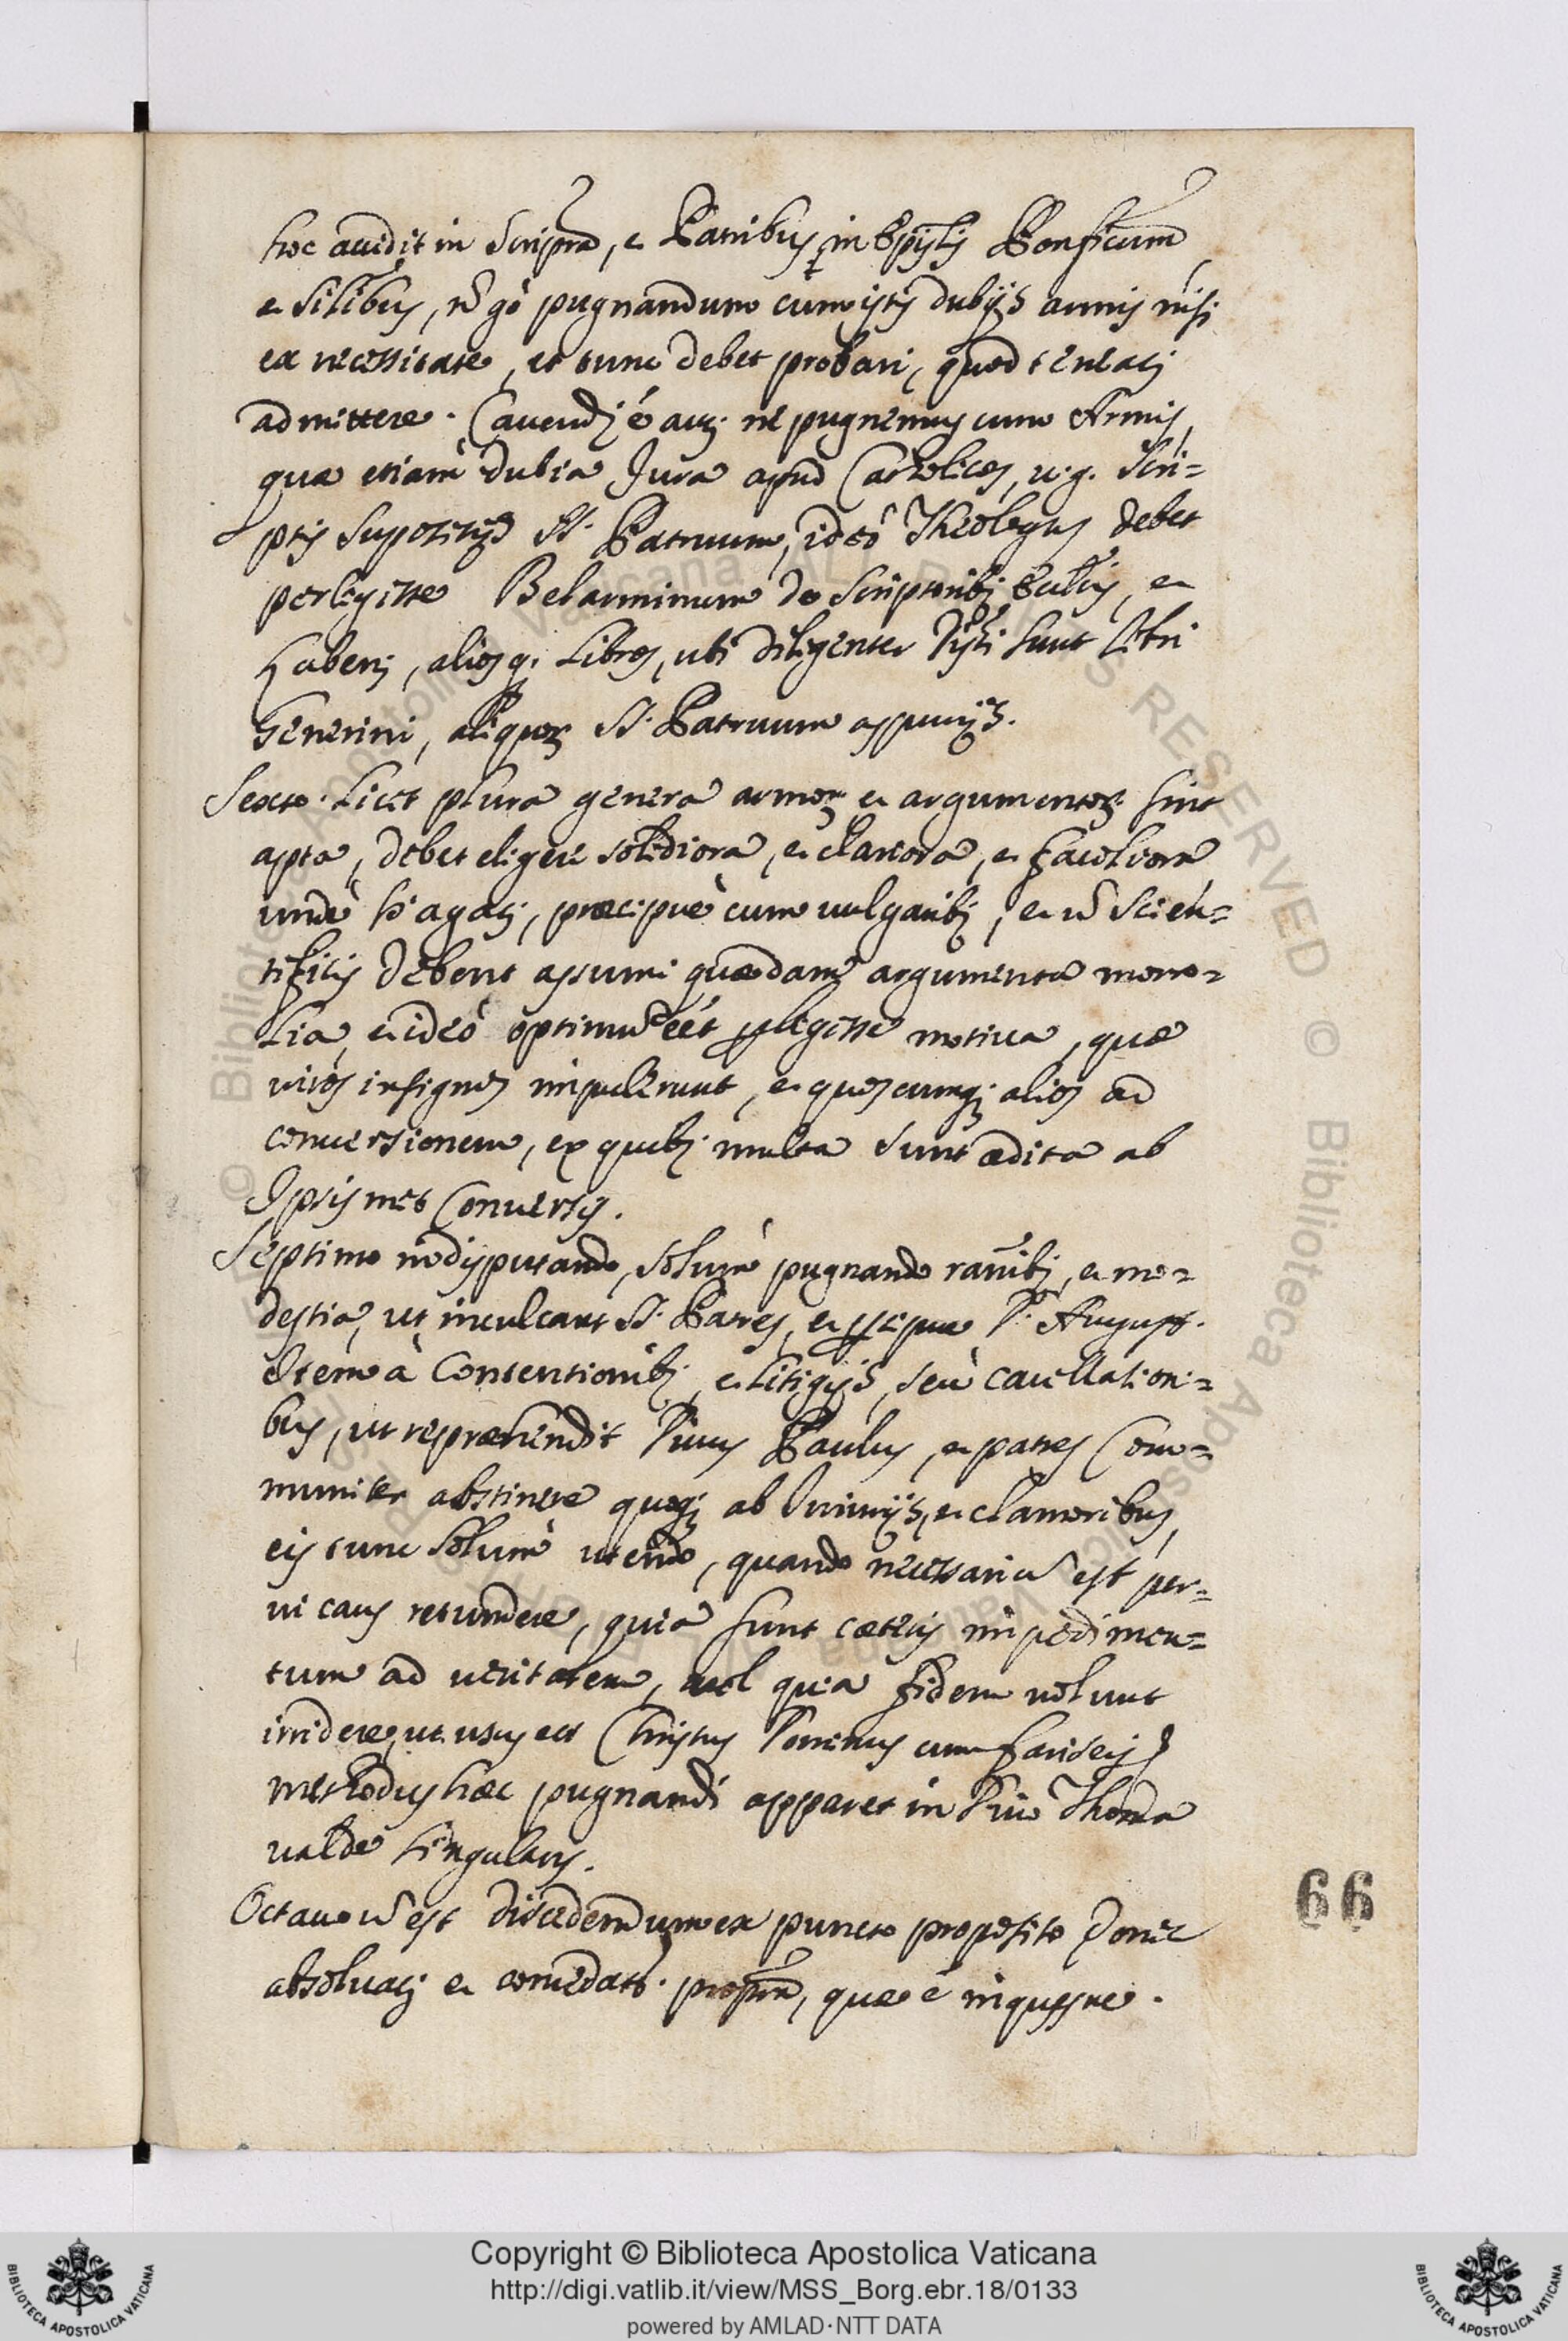 hoc accidit in Scriptra, e Patribus, in Epistis Pontificum
e silibus, nō gō pugnandum cum istis dubijs armis nisi
ex necessitate, et tunc debet probari, quod teneatj
admittere. Cavendj é autj ne pugnemus cum Armis,
quæ etiam dubia Jura apud Catholicos, v.g. Scri=
ptis Suposititijs SS. Patruum, ideò Theologus debet
perlegisse Belarminum de Scriptoribj Ecclcis, e
haberj, aliosq. Libros, ubi diligenter sunt libri
Genuini, aliquor SS. Patruum
Sexto. Licet plura genera armor e argumentor sint
apta, debet eligere solidiora, e clariora, e faciliora
unde si agatj, præcipuè cum vulgaribj, e nō scien=
tificis debent assumi quædam argumenta mora=
lia, e ideò optimū eét plegisse motiva, quæ
viros insignes impulerunt, e quoscumqj alios ad
conversionem, ex quibj multa sunt ædita ab
Ipsismet Conversis.
Septimo nō disputando, solum pugnando raōnibj, e mo=
destia, ut inculcant SS. Patres, e præcipue D. August.
Item à Contentionibj, e Litigijs, seu cavillation=
bus, ut repræhendit Divus Paulus, e patres Com=
muniter abstinere quoqj ab Iniurijs, e clamoribus,
eis tunc solum utendo, quando necessariū est per=
vicaces retundere, quia sunt cæteris impedimen=
tum ad veritatem, vel quia fidem volunt
irridere, ut usus est Christus Dominus cum fariseis
methodus hæc pugnandi apparet in Divo Thoma
valde singularis.
Octavo nō est discedendum ex puncto proposito donec
absolvatj e comedato. proptra, quæ é in quæstne.
66
Copyright © Biblioteca Apostolica Vaticana
http://digi.vatlib.it/view/MSS_Borg.ebr.18/0133
powered by AMLAD·NTT DATA